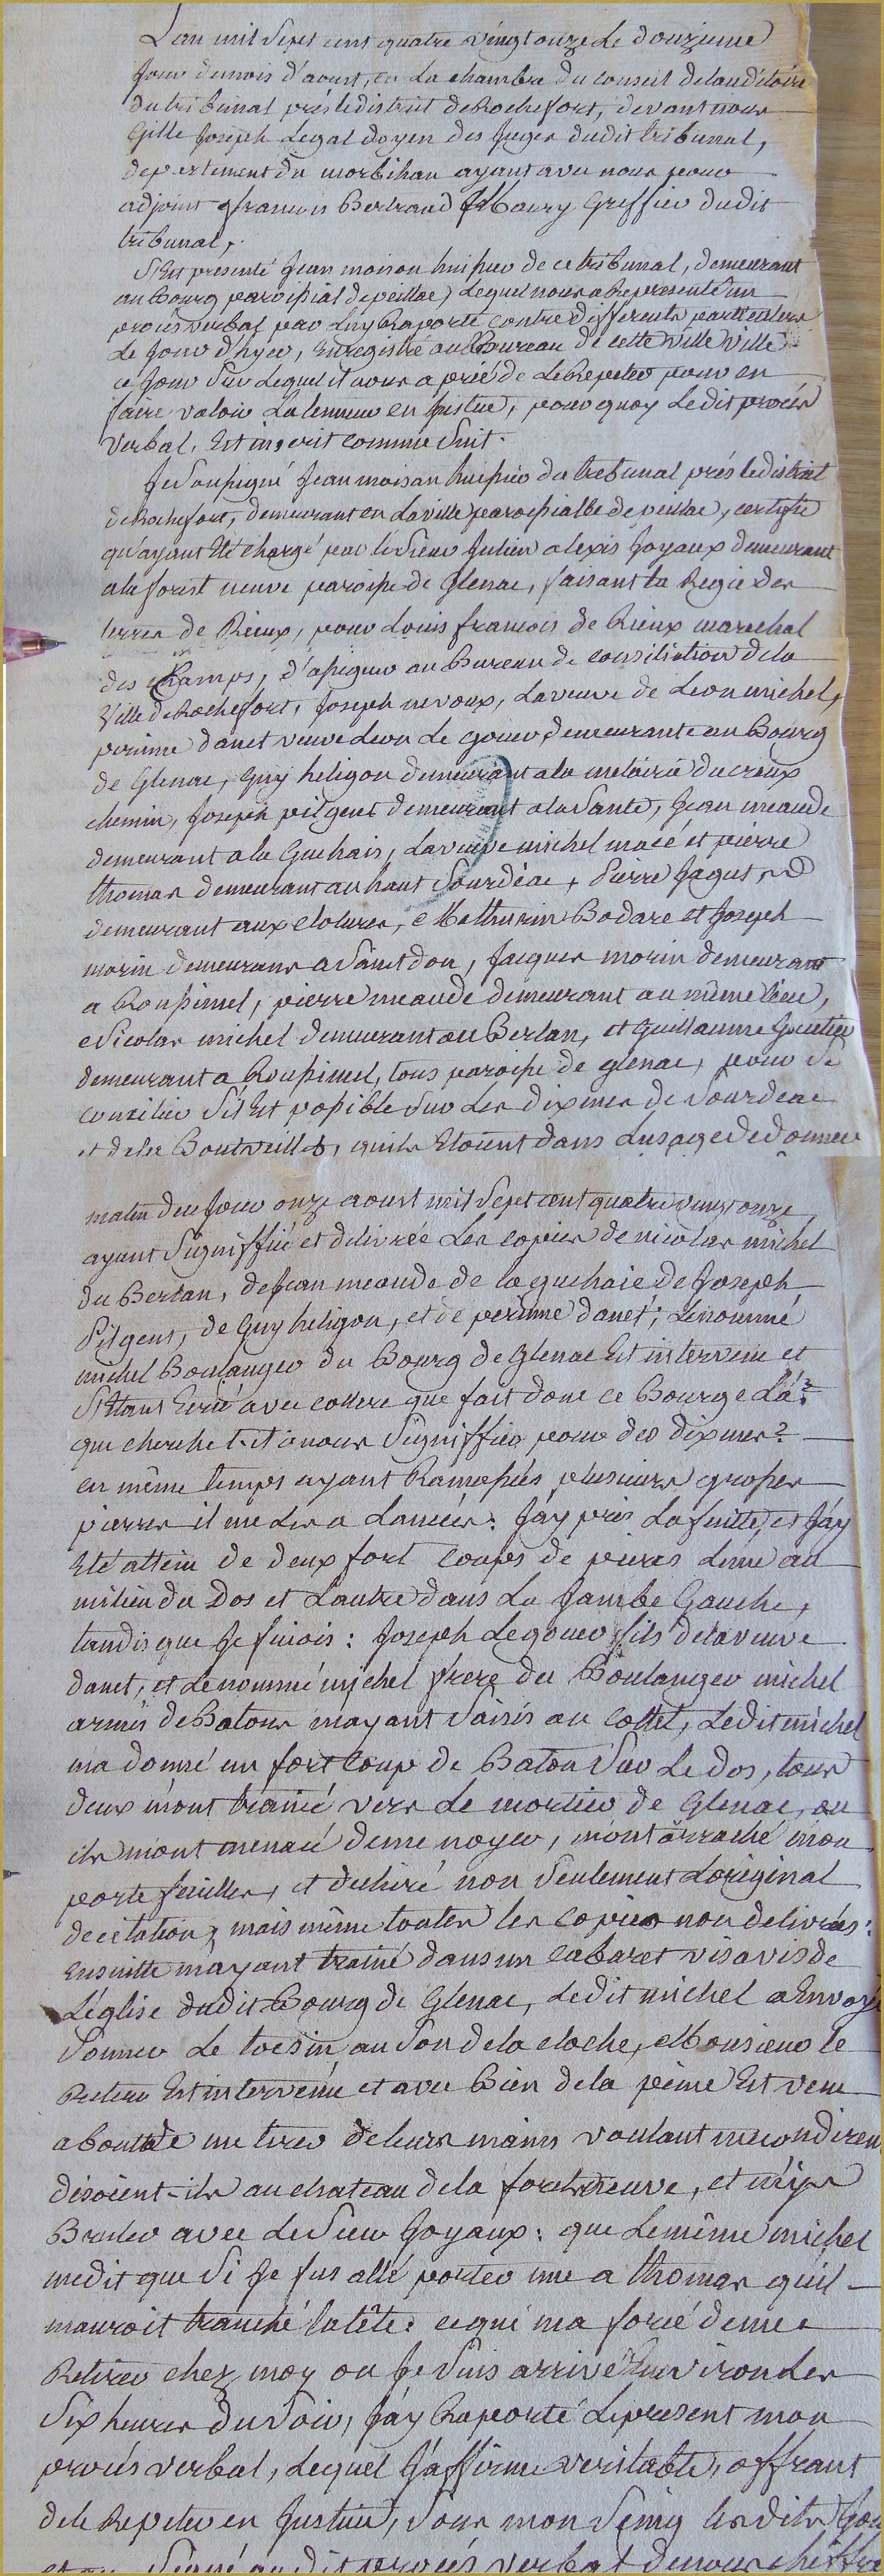 L'an mil Sept cent quatre vingt onze Le douzieme
Jour du mois d'aoust, en La chambre du conseil de lauditoire
du tribunal prés le district de Rochefort, devant nous
Gille Joseph Legal doyen des Juges dudit tribunal,
departement du morbihan ayant avec nous pour
adjoint francois Bertrand Greffier dudit
tribunal,
S'Est presenté Jean moisan huissier de ce tribunal, demeurant
au Bourg paroissial de peillac, Lequel nous a Representé un
procés verbal par Luy Raporté contre differents particuliers
Le Jour d'hyer, Enregistré au Bureau de cette ville ville
ce Jour Sur Lequel il nous a prié de Le Repeter pour en
faire valoir La teneur en Justice, pour quoy Ledit procés
verbal, Est inscrit comme Suit.
Je Soussigné Jean moisan huissier du tribunal prés le district
de Rochefort, demeurant en La ville paroissialle de peillac, certifie
qu'ayant Eté chargé par le Sieur Julien alexis Joyaux demeurant
a la forest neuve paroisse de Glenac, faisant la Regie des
terres de Rieux, pour Louis francois de Rieux marechal
des Champs, d'assigner au Bureau de consiliation de la
Ville de Rochefort, Joseph nevoux, La veuve de Leon michel,
perinne danet veuve Leon Le gouer, demeurante au Bourg
de Glenac, Guy heligon demeurant a la metairie du creux
chemin, Joseph pilgent demeurant a la Sante, Jean meaude
demeurant a la Guehais, La veuve michel macé et pierre
thomas demeurant au haut Sourdéac, Pierre Jagut
demeurant aux clotures, Mathurin Bodare et Joseph
morin demeurans a Saint don, Jacques morin demeurant
a Roussimel, pierre meaude demeurant au même lieu,
Nicolas michel demeurant au Berlan, et Guillaume Gautier
demeurant a Roussimel, tous paroisse de glenac, pour Se
concilier S'il Est possible Sur Les dixmes de Sourdeac
et de la Boutveillet, quils Etoient dans Lusage de donner
matin de ce Jour onze aoust mil Sept cent quatre vingt onze,
ayant Signiffié et delivrée Les copies de nicolas michel
du Berlan, de Jean meaude de la guehaie de Joseph
Pilgent, de Guy heligon, et de perinne danet; Le nommé
michel Boulanger du Bourg de Glenac Est intervenu et
S'Etant Ecrié avec collere que fait donc ce Bougre La?
que cherche t-il a nous Signiffier pour des dixmes?
en même temps ayant Ramassés plusieurs grosses
pierres il me Les a Lancées: J'ay pris La fuitte, et J'ay
Eté attein de deux fort coups de pieres Lune au
milieu du Dos et Lautre dans La Jambe Gauche,
tandis que Je fuiois: Joseph Legouer fils de la veuve
danet, et Le nommé michel frere du Boulanger michel
armés de Batons m'ayant Saisis au collet, Ledit michel
ma donné un fort coup de Baton Sur Le dos, tous
deux m'ont trainé vers Le mortier de Glenac, ou
ils m'ont menacé de me noyer, m'ont arraché mon
porte feuilles, et dechiré non Seulement Loriginal
de citation, mais même toutes les copies non delivrées:
Ensuitte m'ayant trainé dans un cabaret vis avis de
L'église dudit Bourg de Glenac, Ledit michel a Envoyé
Sonner Le tocsin au Son de la cloche, Monsieur le
Recteur Est intervenu et avec Bien de la peine Est venu
a bout de me tirer de leurs mains voulant me conduire
disoient-ils au chateau de la forest neuve, et m'y
Bruler avec Le Sieur Joyaux: que Le même michel
me dit que Si Je fus allé porter une a thomas quil
mauroit tranché la tête: ce qui ma forcé de me
Retirer chez moy ou Je Suis arrivé Environ Les
Six heures du Soir, J'ay Raporté Le present mon
procés verbal, Lequel J'affirme veritable, offrant
de le Repeter en Justice, Sous mon Seing Lesdits Jour
Signé audit procés verbal de nous chiffré